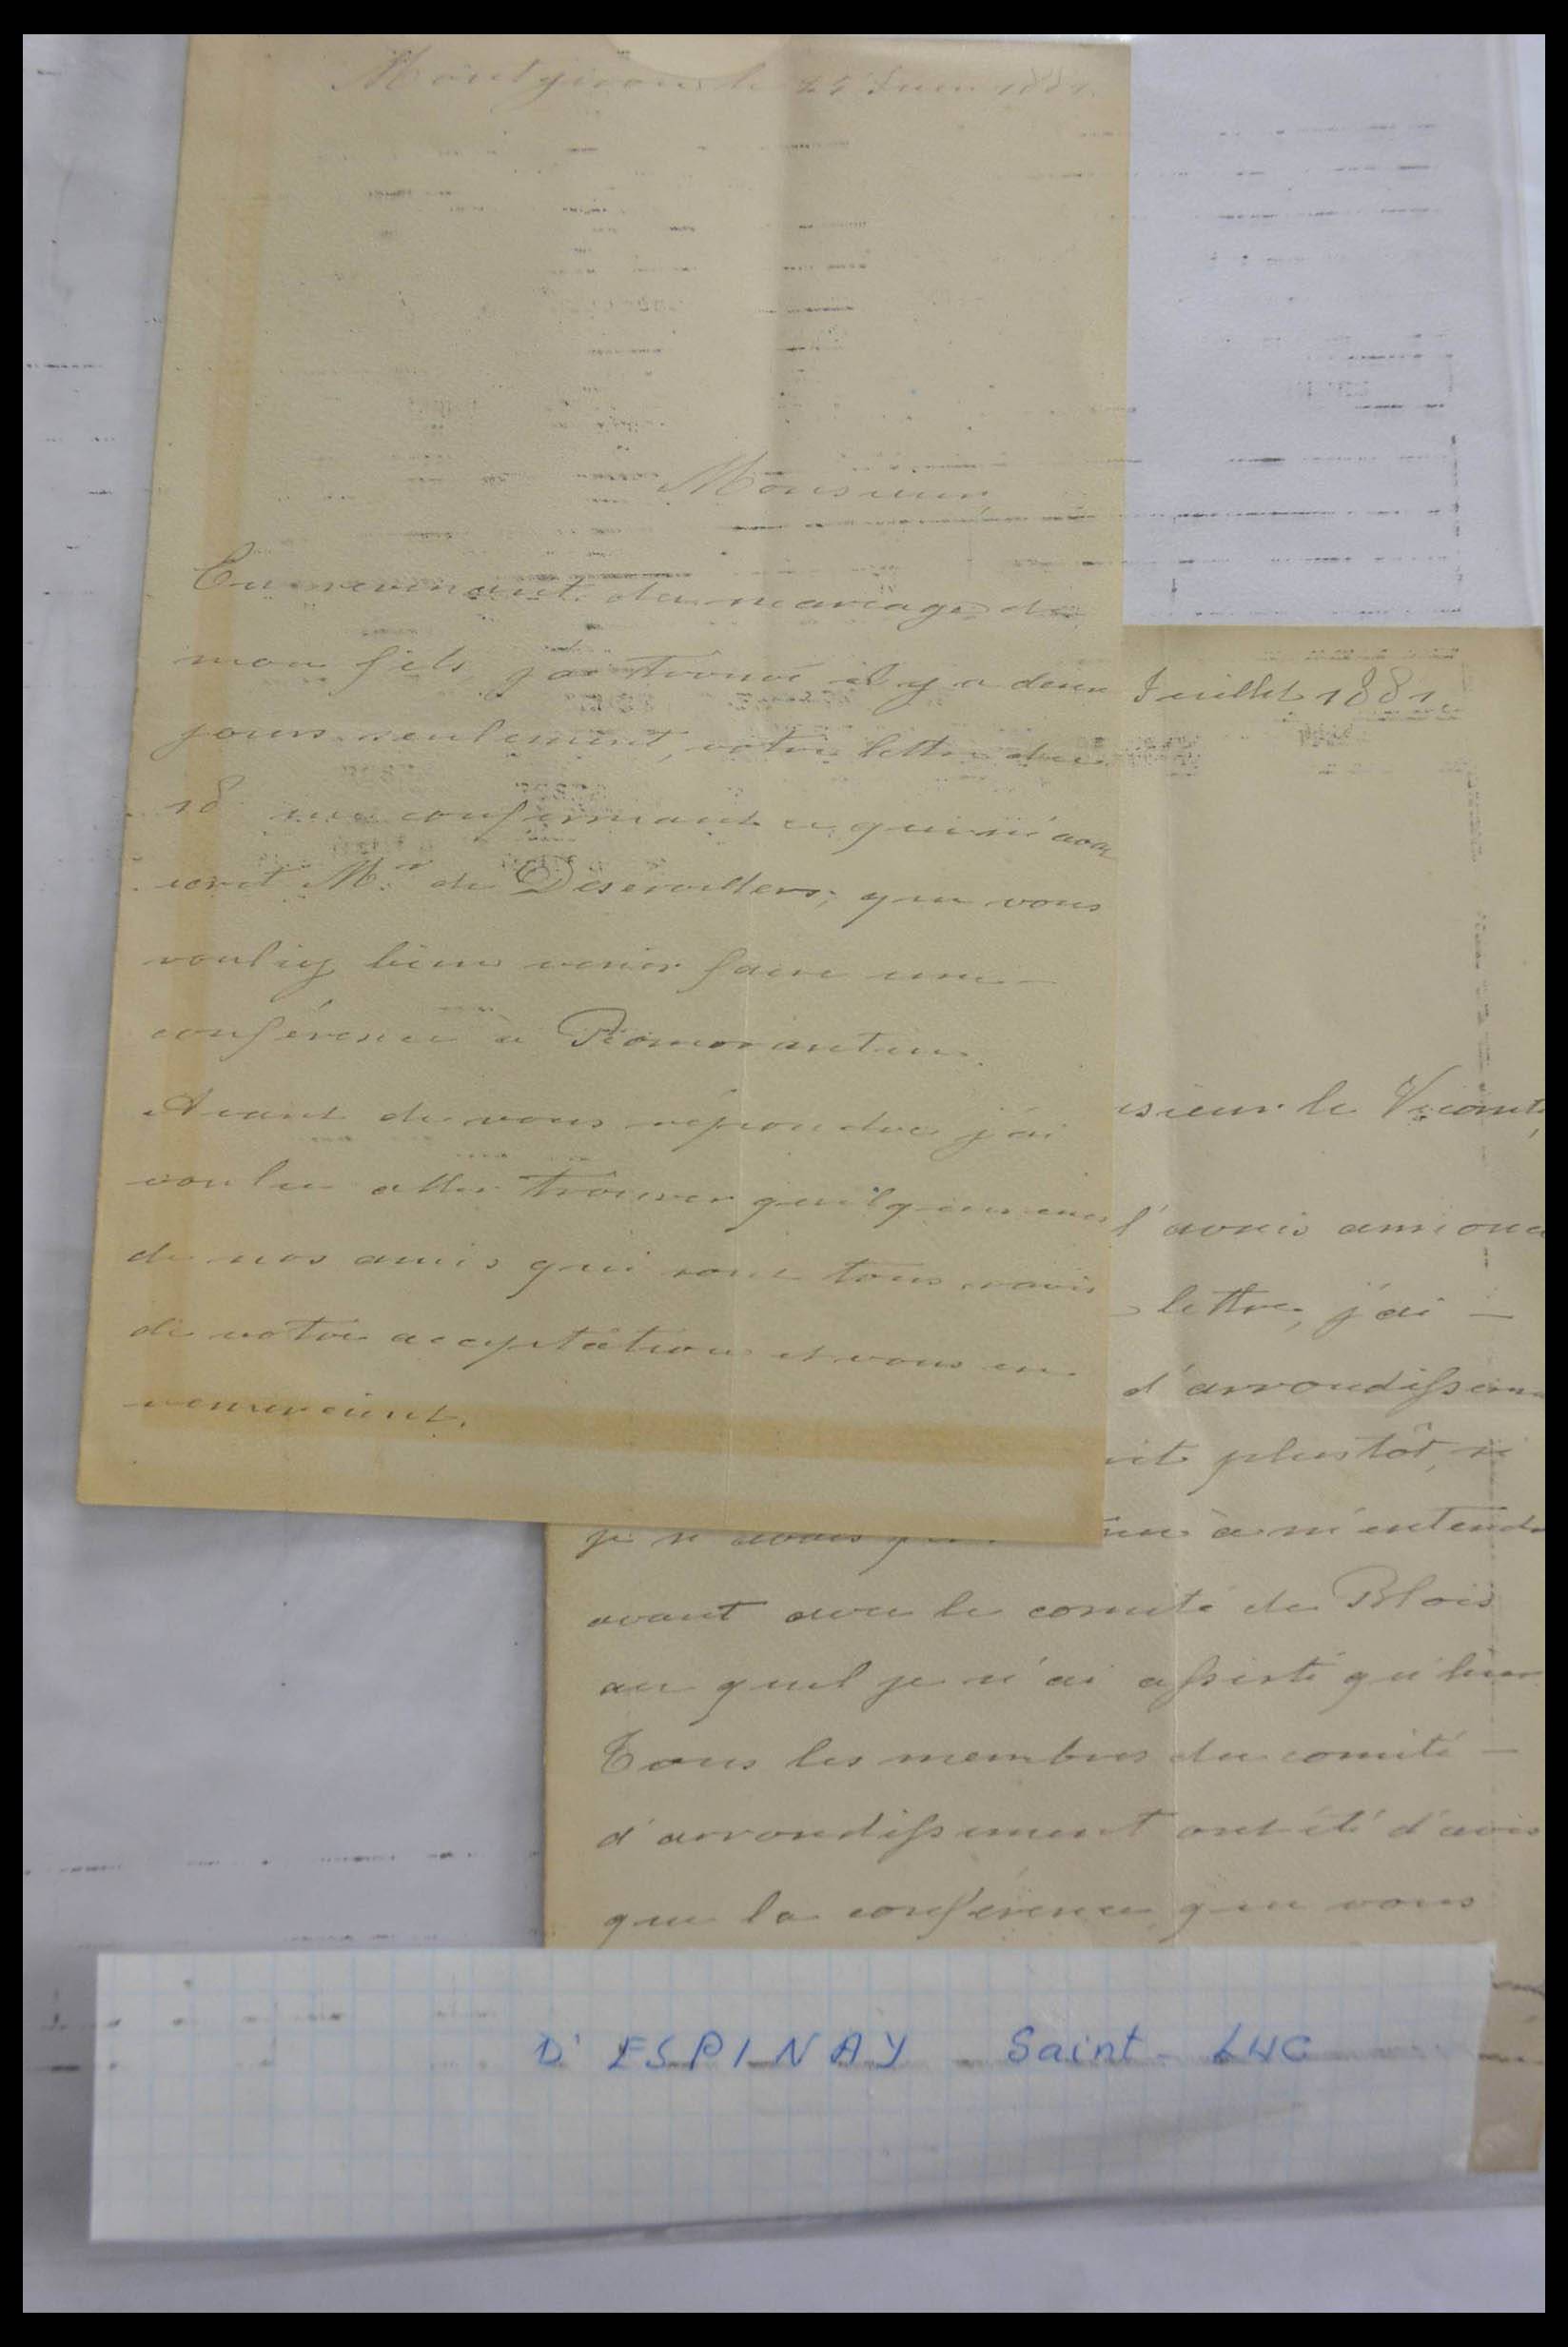 Montgiron le 25 Juin 1881.
Monsieur
En revenant du mariage de
mon fils, j'ai trouvé il y a deux
jours seulement, votre lettre du
18 me confirmant ce que m'avait
écrit Mr de Déservillers; que vous
vouliez bien venir faire une
conférence à Romorantin.
Avant de vous répondre j'ai
voulu aller trouver quelques uns
de nos amis qui sont tous ravis
de votre acceptation et vous en
remercient.
Juillet 1881.
sieur le Vicomte,
l'avais annoncé
lettre, j'ai —
d'arrondissement
plustôt, si
je n'avais à m'entendre
avant avec le comité de Blois
au quel je n'ai assisté qu'hier
Tous les membres du comité —
d'arrondissement ont été d'avis
que la conférence que vous
D'ESPINAY Saint-LUC